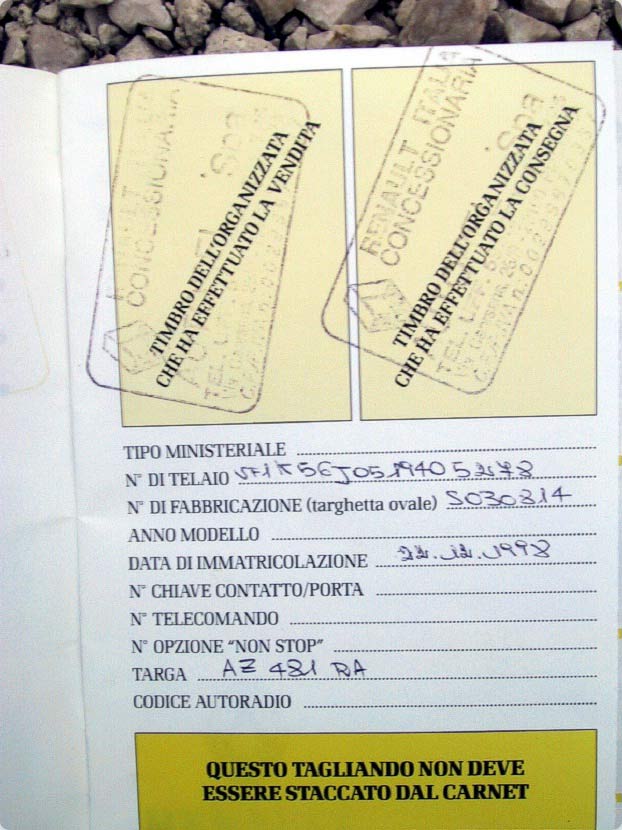 CONCESSIONARIA
Spa
TIMBRO DELL'ORGANIZZATA
CHE HA EFFETTUATO LA VENDITA
RENAULT ITALIA
CONCESSIONARIA
Spa
TIMBRO DELL'ORGANIZZATA
CHE HA EFFETTUATO LA CONSEGNA
TIPO MINISTERIALE
N° DI TELAIO VF1K56EJ0519405278
N° DI FABBRICAZIONE (targhetta ovale) S030814
ANNO MODELLO
DATA DI IMMATRICOLAZIONE 22.12.1998
N° CHIAVE CONTATTO/PORTA
N° TELECOMANDO
N° OPZIONE "NON STOP"
TARGA AZ 481 RA
CODICE AUTORADIO
QUESTO TAGLIANDO NON DEVE
ESSERE STACCATO DAL CARNET